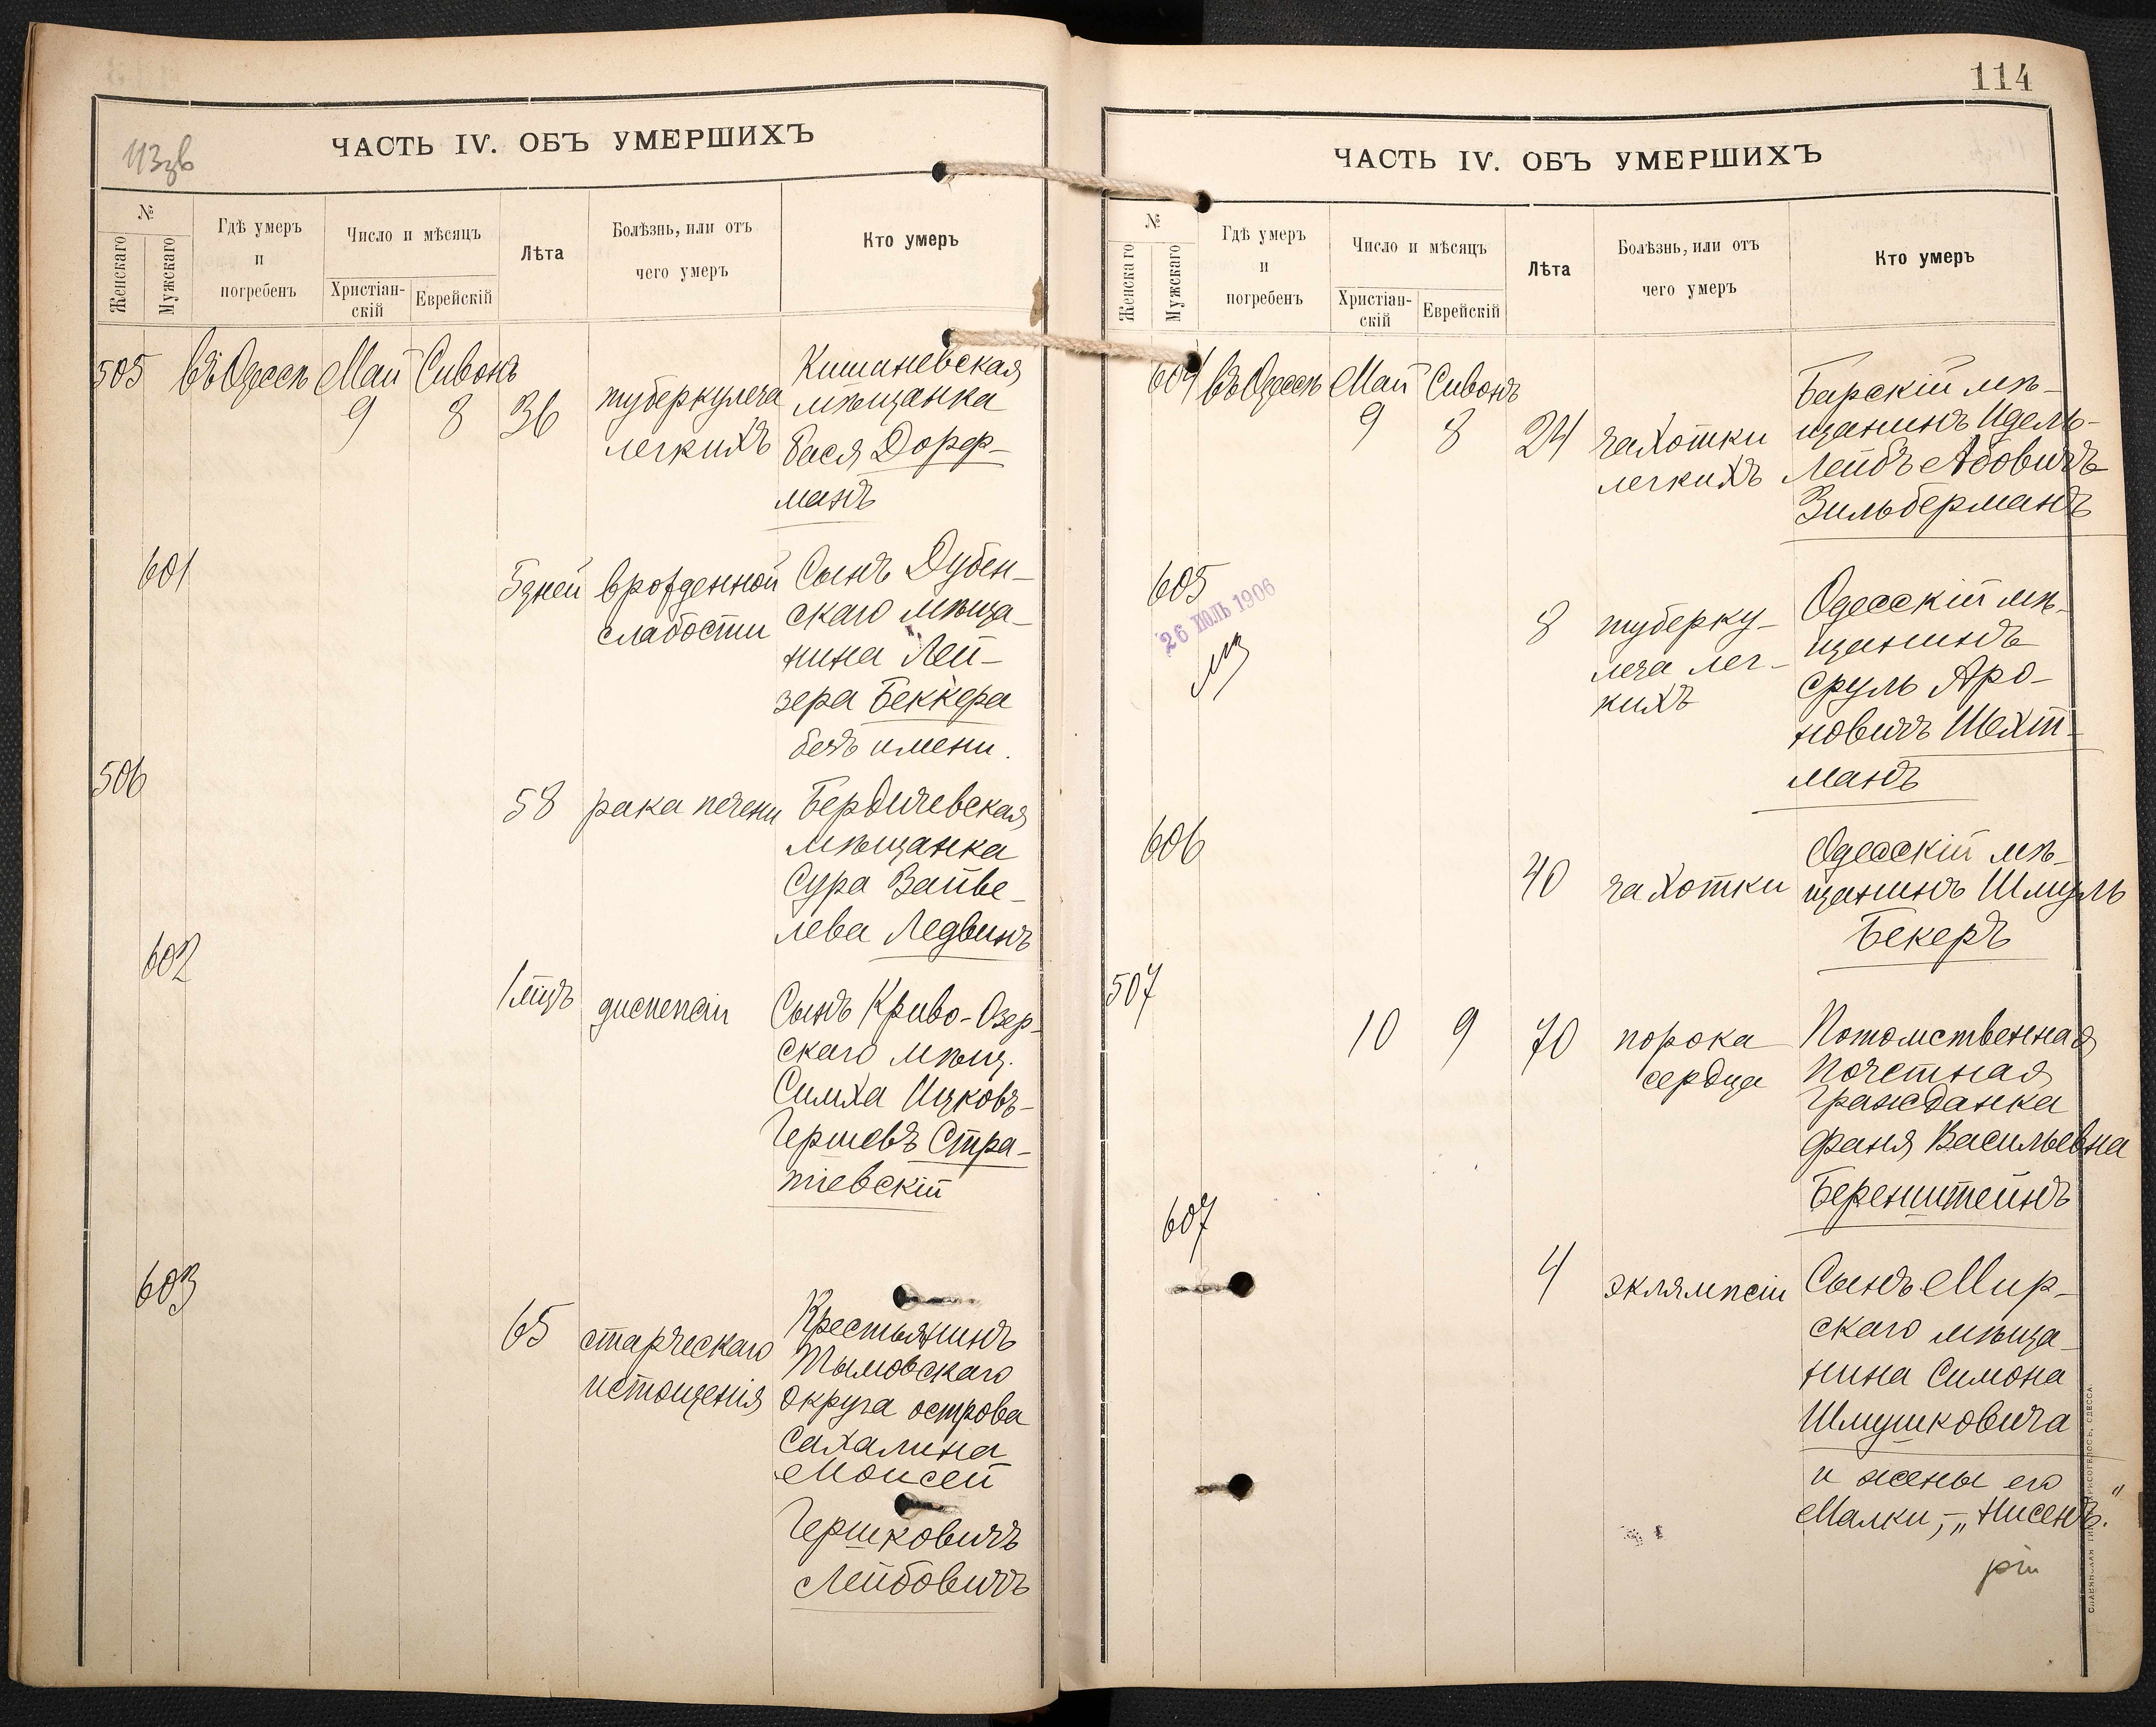 113зв
ЧАСТЬ IV. ОБЪ УМЕРШИХЪ
№
Женскаго
Мужскаго
Гдѣ умеръ
и
погребенъ
Число и мѣсяцъ
Христіан-
скій
Еврейскій
Лѣта
Болѣзнь, или отъ
чего умеръ
Кто умеръ
505 въ Одессѣ Май Сивонъ
9 8 36
туберкулеза
легкихъ
Кишиневская
мѣщанка
Бася Дорф-
манъ
601
5 дней врожденной
слабости
Сынъ Дубен-
скаго мѣща-
нина Лей-
зера Беккера
безъ имени.
506
58 рака печени
Бердичевская
мѣщанка
Сура Вайве-
лева Ледвинъ
602
1 мцъ диспепсіи
Сынъ Криво-Озер-
скаго мѣщ.
Симха Ицковъ-
Гершовъ Стра-
тіевскій
603
65 старческаго
истощенія
Крестьянинъ
Тымовскаго
округа острова
Сахалина
Моисей
Гершковичъ
Лейбовичъ
114
ЧАСТЬ IV. ОБЪ УМЕРШИХЪ
№
Женскаго
Мужскаго
Гдѣ умеръ
и
погребенъ
Число и мѣсяцъ
Христіан-
скій
Еврейскій
Лѣта
Болѣзнь, или отъ
чего умеръ
Кто умеръ
604 въ Одессѣ Май Сивонъ
9 8 24
чахотки
легкихъ
Барскій мѣ-
щанинъ Идель-
Лейбъ Абовичъ
Зильберманъ
605
26 ІЮЛЬ 1906
8 туберку-
леза лег-
кихъ
Одесскій мѣ-
щанинъ
Сруль Аро-
новичъ Шехт-
манъ
606
40 чахотки
Одесскій мѣ-
щанинъ Шмуль
Бекеръ
507
10 9 70
порока
сердца
Потомственная
Почетная
Гражданка
Фаня Васильевна
Беренштейнъ
607
4 эклямпсіи
Сынъ Мир-
скаго мѣща-
нина Симона
Шмушковича
и жены его
Малки, - „Нисенъ."